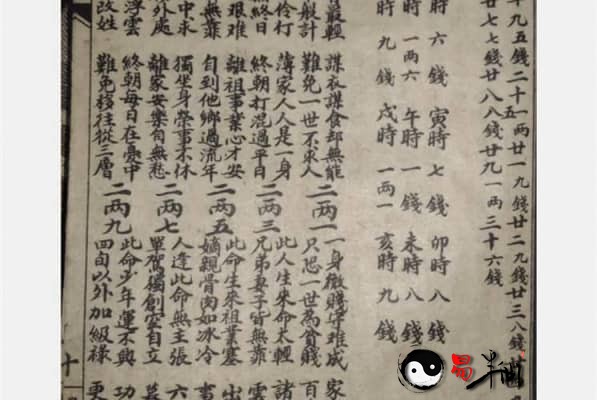 九五錢二十一兩五廿一九錢廿二九錢廿三八錢廿
廿七七錢廿八八錢廿九一兩三十六錢
時六錢寅時七錢卯時八錢
時一兩六午時一錢未時八錢
時九錢戌時一兩一亥時九錢
最輕
般計
伶仃
無終日
艱难
無靠
中求
外處
浮雲
改姓
謀衣謀食却無能
難免一世不求人
薄家人人是一身
終朝打混過平日
離祖事業心才安
自到他鄉過流年
獨坐身榮事不休
離家安樂自無愁
終朝每日在憂中
難免移往從三層
二兩一
一身微賤難成
只恐一世為貧賤
二兩三
此人生來命太輕
兄弟妻子皆無靠
二兩五
此命生來祖業塞
嫡親骨肉如冰冷
二兩七
人逢此命無主張
單駕獨創空自立
二兩九
此命少年運不與
四旬以外加級祿
家
百
諸
雲
出
事
六
功
更
十
易